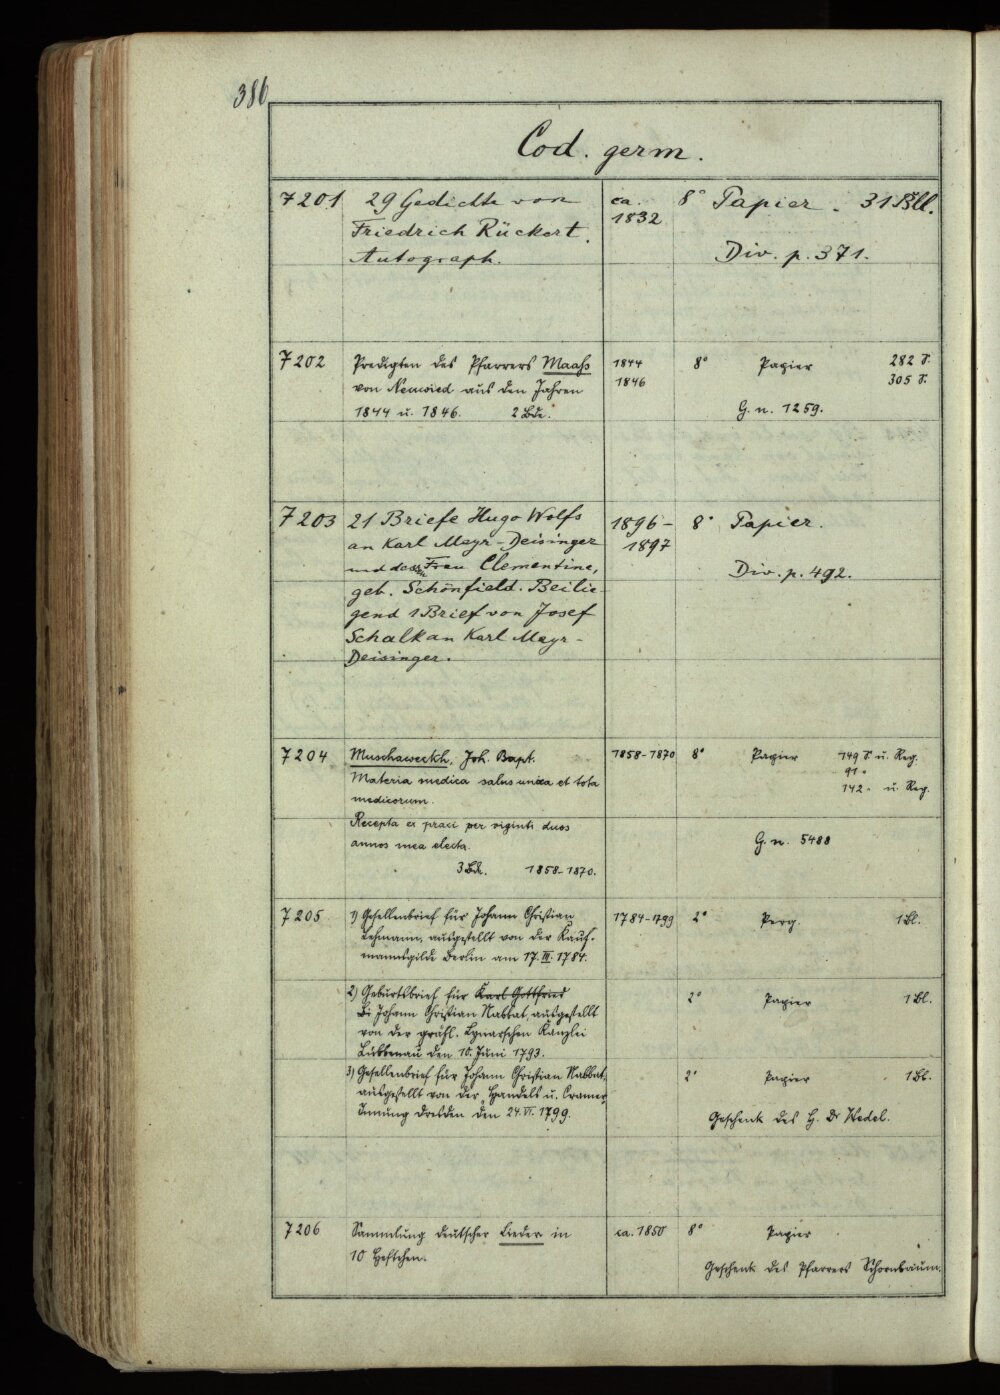 386
Cod. germ.
7201 29 Gedichte von
Friedrich Rückert.
Autograph.
ca.
1832
8° Papier. 31 Bll.
Div. p. 371.
7202 Predigten des Pfarrers Maaß
von Neuwied aus den Jahren
1844 u. 1846. 2 Bde.
1844
1846
8° Papier 282 S.
305 S.
G. n. 1259.
7203 21 Briefe Hugo Wolfs
an Karl Mayr-Deisinger
und dessen Frau Clementine,
geb. Schönfield. Beilie-
gend 1 Brief von Josef
Schalk an Karl Mayr-
Deisinger.
1896-
1897
8° Papier.
Div. p. 492.
7204 Muschaweckh, Joh. Bapt.
Materia medica salus unica et tota
medicorum.
Recepta ex praxi per viginti duos
annos mea electa.
3 Bde. 1858-1870.
1858-1870 8° Papier 149 S. u. Reg.
91 "
142 " u. Reg.
G. n. 5488
7205 1) Gesellenbrief für Johann Christian
Lehmann, ausgestellt von der Kauf-
mannsgilde Berlin am 17. III. 1784.
1784-1799 2° Perg. 1 Bl.
2) Geburtsbrief für Karl Gottfried
Johann Christian Nabbat, ausgestellt
von der gräfl. Lynarschen Kanzlei
Lübbenau den 10. Juni 1793.
2° Papier 1 Bl.
3) Gesellenbrief für Johann Christian Nabbat,
ausgestellt von der Handels u. Cramer
Innung Dresden den 24. VI. 1799.
2° Papier 1 Bl.
Geschenk des H. Dr Wedel.
7206 Sammlung deutscher Lieder in
10 Heftchen.
ca. 1850 8° Papier
Geschenk des Pfarrers Schornbaum.